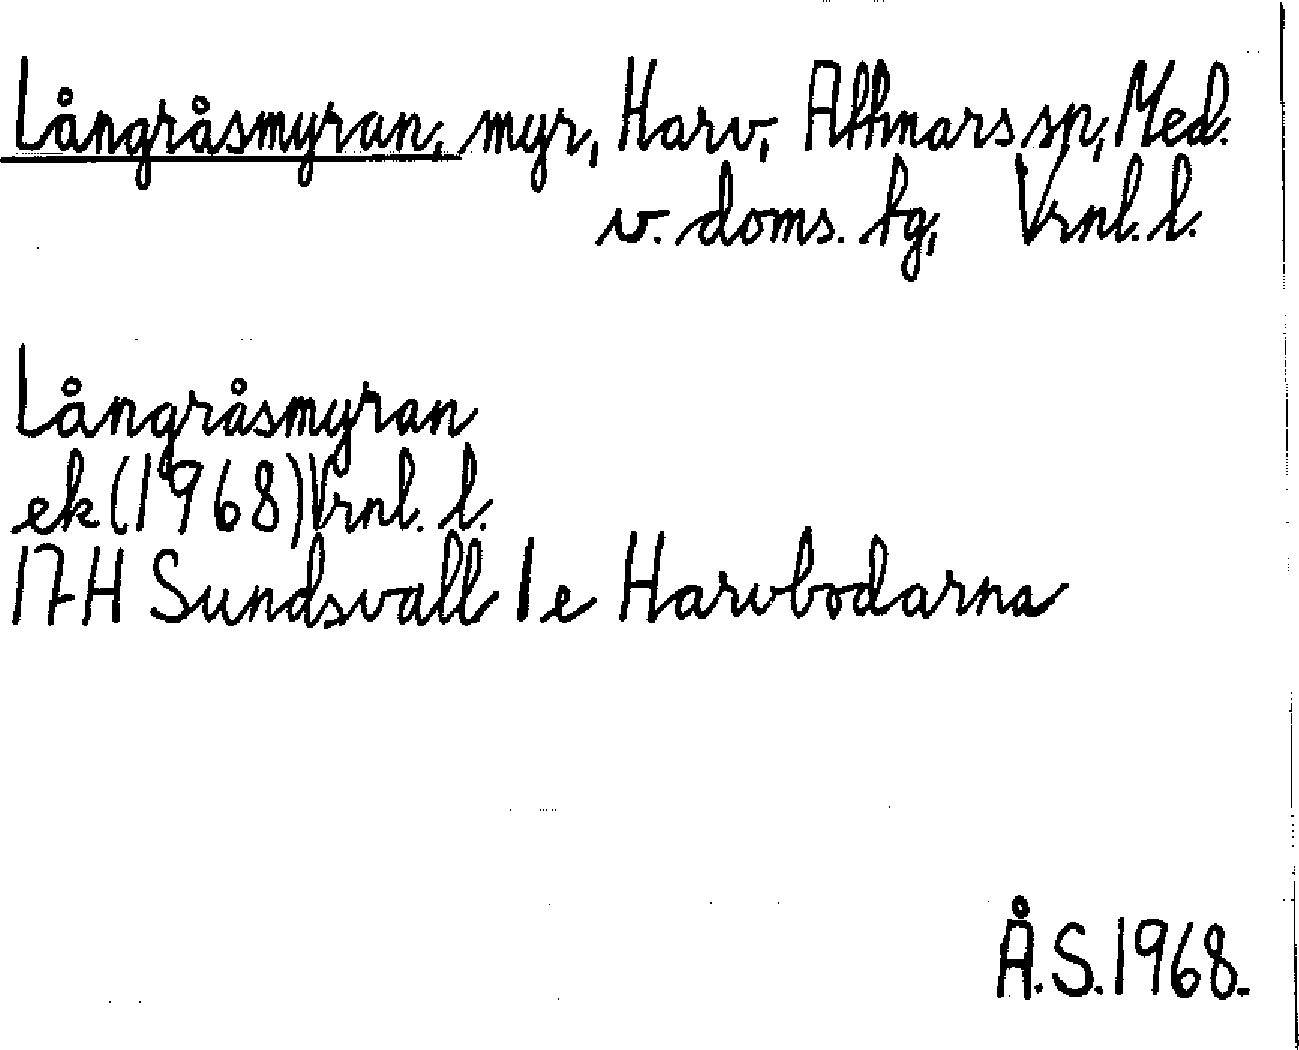 Långråsmyran, myr, Harv, Attmars sn, Med.
v. doms. tg, Vrnl. l.
Långråsmyran
ek (1968) Vrnl. l.
17H Sundsvall 1e Harvbodarna
Å.S. 1968.